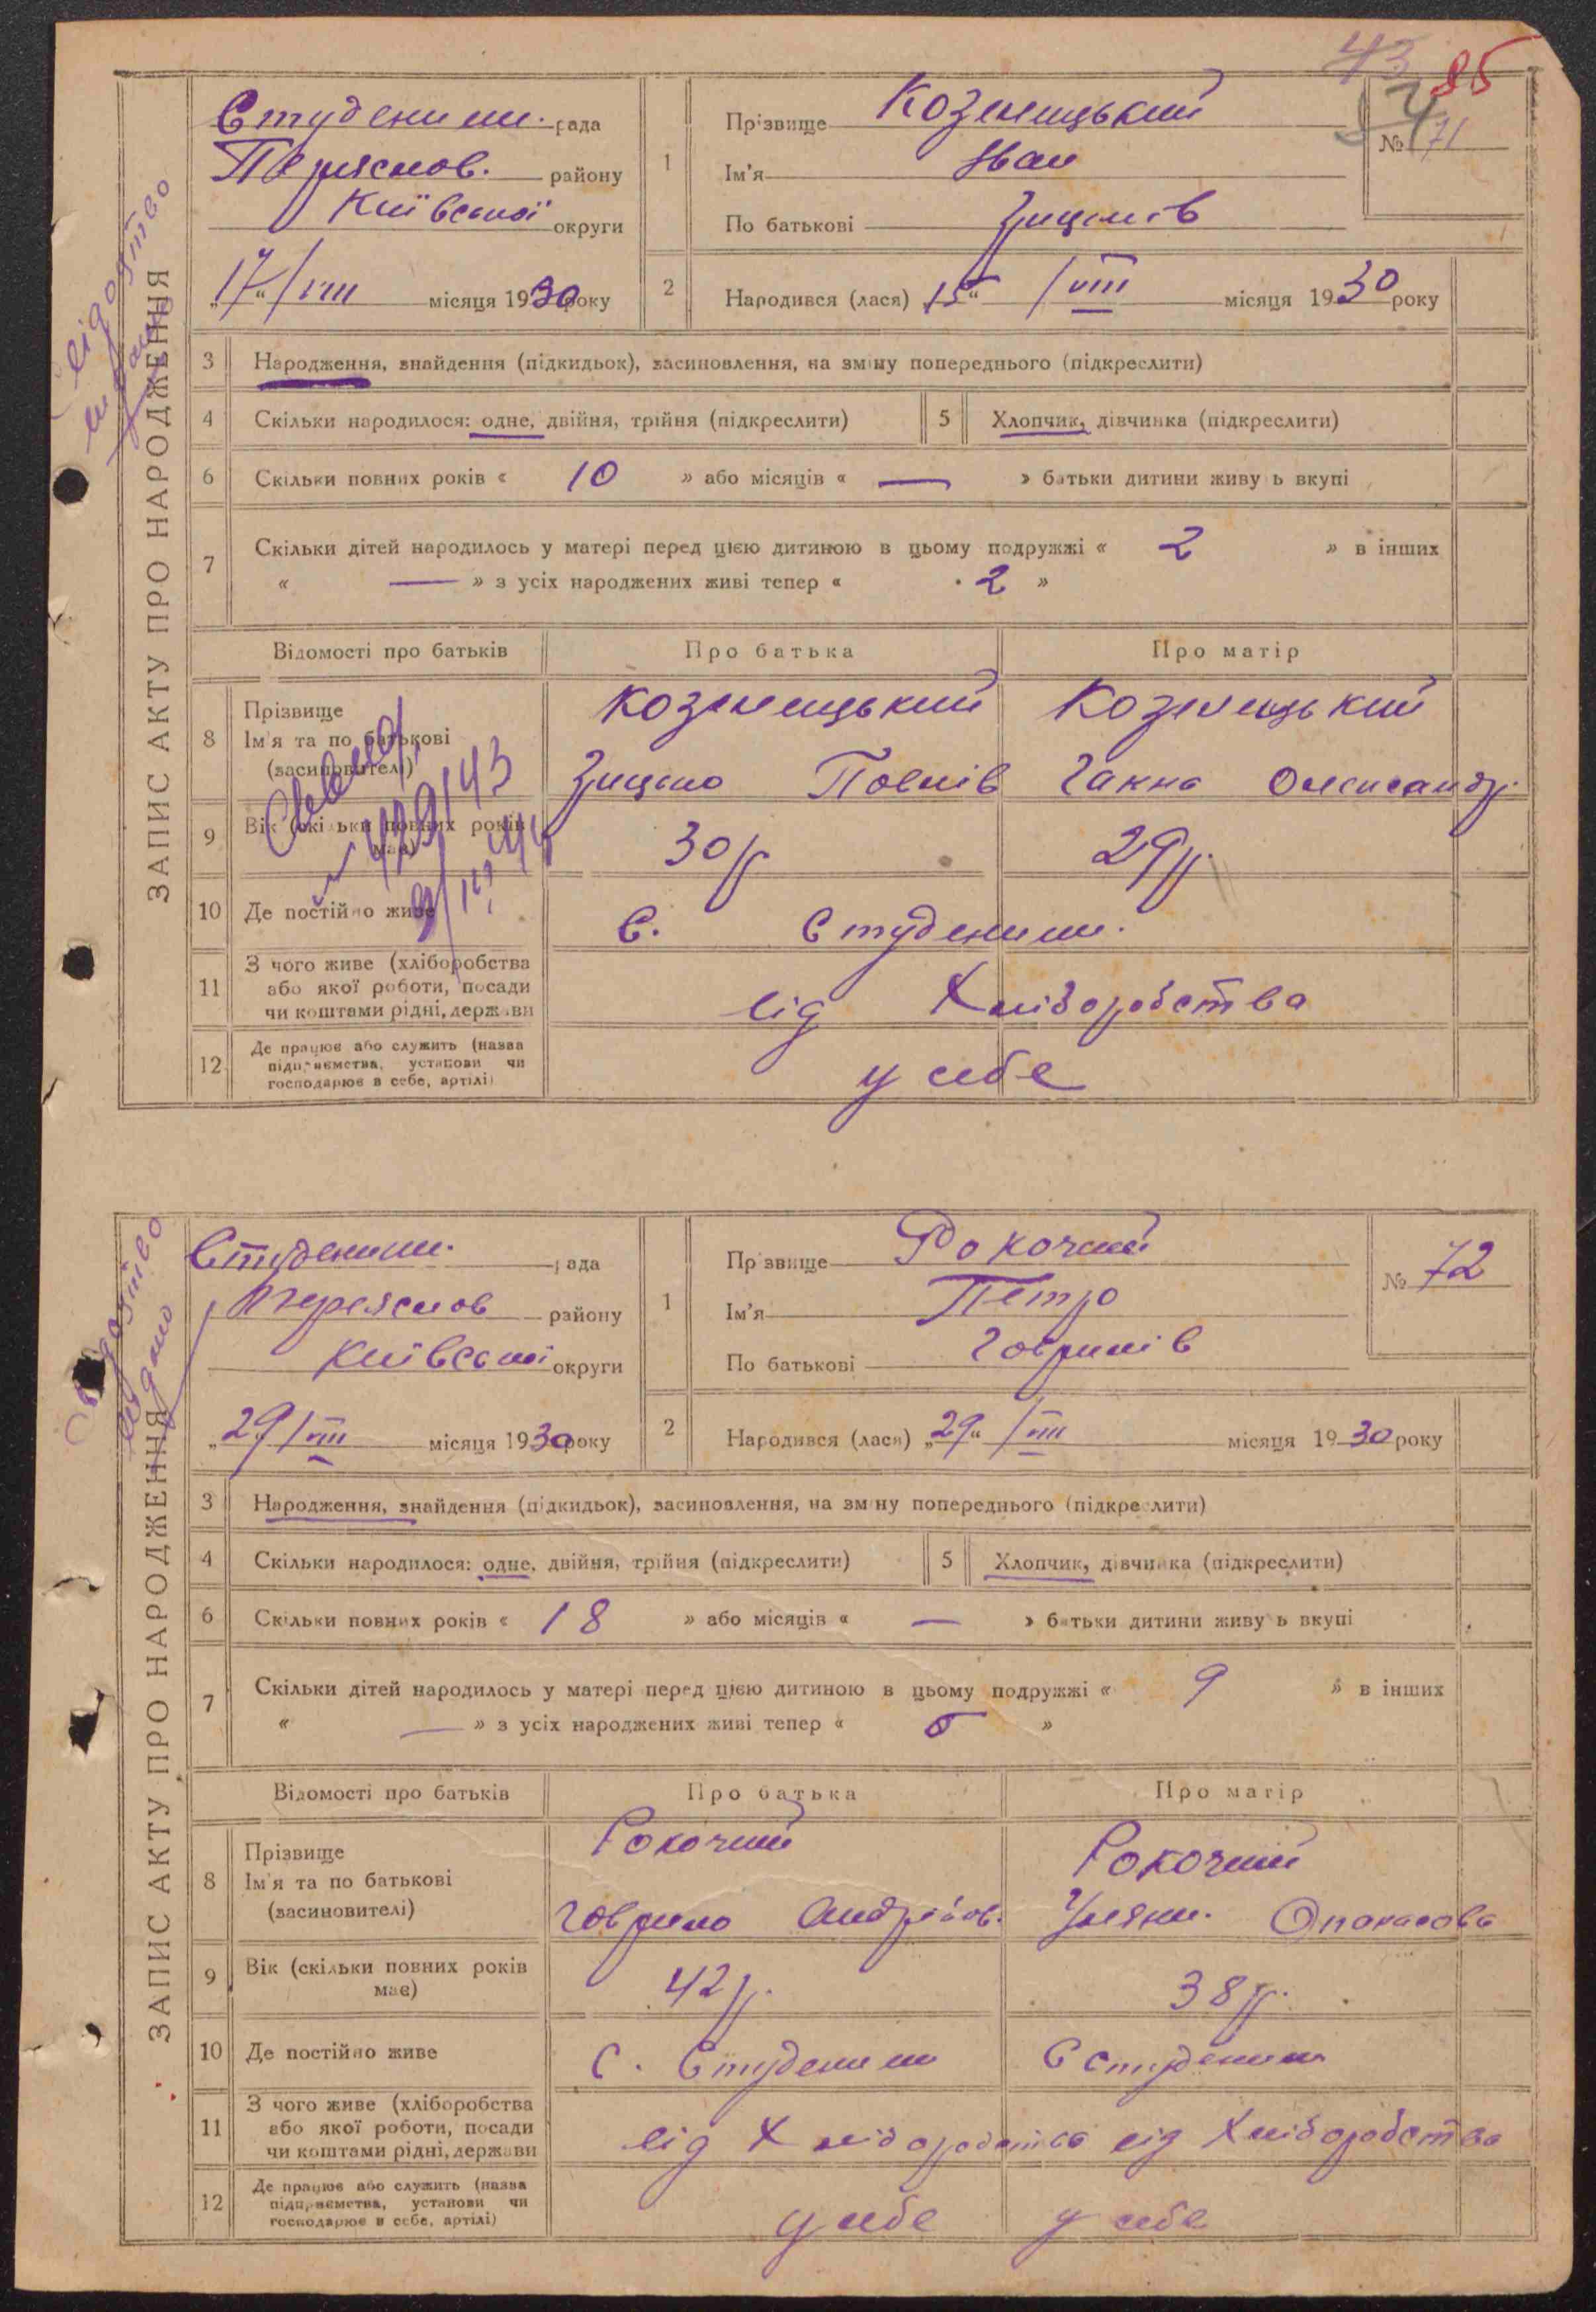 43 85
ЗАПИС АКТУ ПРО НАРОДЖЕННЯ
Студеник. рада
Переяслов. району
Київської округи
„17“/VIII місяця 1930 року
1
Прізвище Козлецький
Ім'я Іван
По батькові Грицьків
№ 71
2
Народився (лася) „15“ /VIII місяця 1930 року
3 Народження, знайдення (підкидьок), засиновлення, на зміну попереднього (підкреслити)
4 Скільки народилося: одне, двійня, трійня (підкреслити) 5 Хлопчик, дівчинка (підкреслити)
6 Скільки повних років « 10 » або місяців « — » батьки дитини живуть вкупі
7 Скільки дітей народилось у матері перед цією дитиною в цьому подружжі « 2 » в інших
« — » з усіх народжених живі тепер « 2 »
Відомості про батьків Про батька Про матір
8 Прізвище
Ім'я та по батькові
(засиновителі)
Козлецький Козлецький
Грицько Павлів Ганна Олександр.
9 Вік (скільки повних років має) 30 р 29 р.
439/43
10 Де постійно живе С. Студеник.
11 З чого живе (хліборобства
або якої роботи, посади
чи коштами рідні, держави
від Хліборобства
12 Де працює або служить (назва
підприємства, установи чи
господарює в себе, артілі)
у себе
ЗАПИС АКТУ ПРО НАРОДЖЕННЯ
Студеник. рада
Переяслов району
Київської округи
„29/VIII місяця 1930 року
1
Прізвище Рокочий
Ім'я Петро
По батькові Гаврилів
№ 72
2
Народився (лася) „29“ /VIII місяця 1930 року
3 Народження, знайдення (підкидьок), засиновлення, на зміну попереднього (підкреслити)
4 Скільки народилося: одне, двійня, трійня (підкреслити) 5 Хлопчик, дівчинка (підкреслити)
6 Скільки повних років « 18 » або місяців « — » батьки дитини живуть вкупі
7 Скільки дітей народилось у матері перед цією дитиною в цьому подружжі « 9 » в інших
« — » з усіх народжених живі тепер « 5 »
Відомості про батьків Про батька Про матір
8 Прізвище
Ім'я та по батькові
(засиновителі)
Рокочий Рокочий
Гаврило Андрійов. Уляна. Опанасова
9 Вік (скільки повних років
має)
42 р. 38 р.
10 Де постійно живе С. Студеник С Студеник
11 З чого живе (хліборобства
або якої роботи, посади
чи коштами рідні, держави
від Хліборобства від Хліборобства
12 Де працює або служить (назва
підприємства, установи чи
господарює в себе, артілі)
у себе у себе